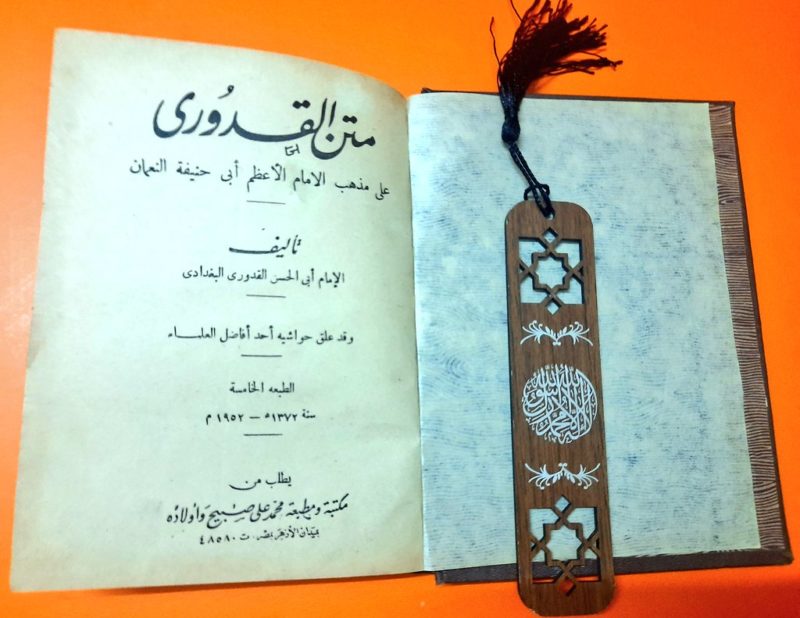 متن القدُورى
على مذهب الامام الأعظم أبى حنيفة النعمان
تأليف
الإمام أبى الحسن القدورى البغدادى
وقد علق حواشيه أحد أفاضل العلماء
الطبعه الخامسة
سنة ١٣٧٢ھ — ١٩٥٢ م
يطلب من
مكتبة ومطبعة محمد على صبيح وأولاده
بميدان الأزهر بمصر ت ٤٨٥٨٠
لا إله إلا الله محمد رسول الله